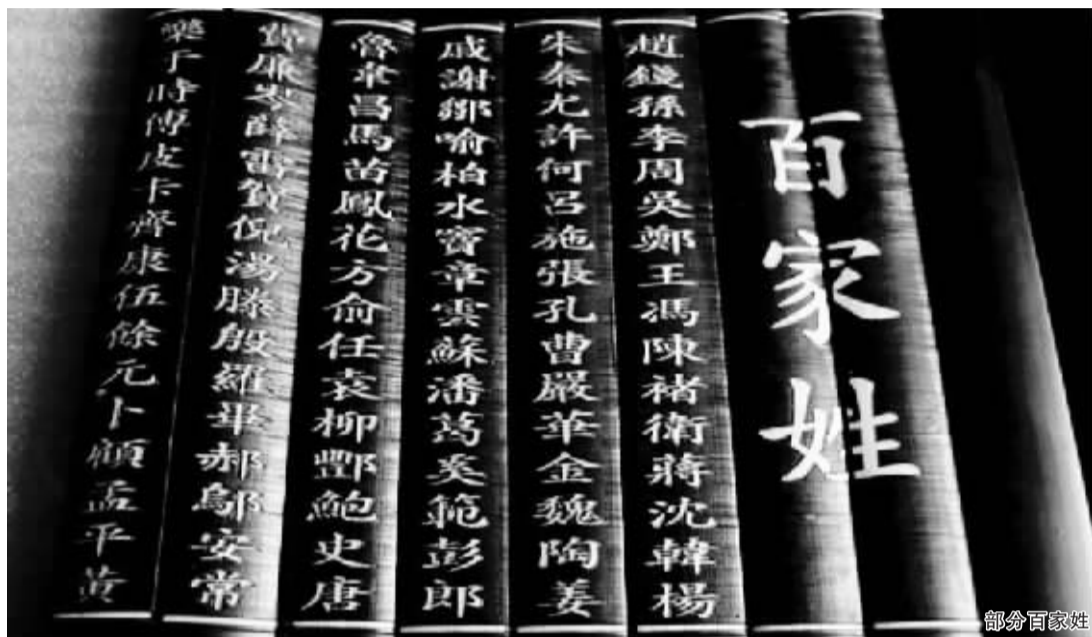 百家姓
趙錢孫李周吳鄭王馮陳褚衛蔣沈韓楊
朱秦尤許何呂施張孔曹嚴華金魏陶姜
戚謝鄒喻柏水竇章雲蘇潘葛奚範彭郎
魯韋昌馬苗鳳花方俞任袁柳酆鮑史唐
費廉岑薛雷賀倪湯滕殷羅畢郝鄔安常
樂于時傅皮卞齊康伍餘元卜顧孟平黃
部分百家姓